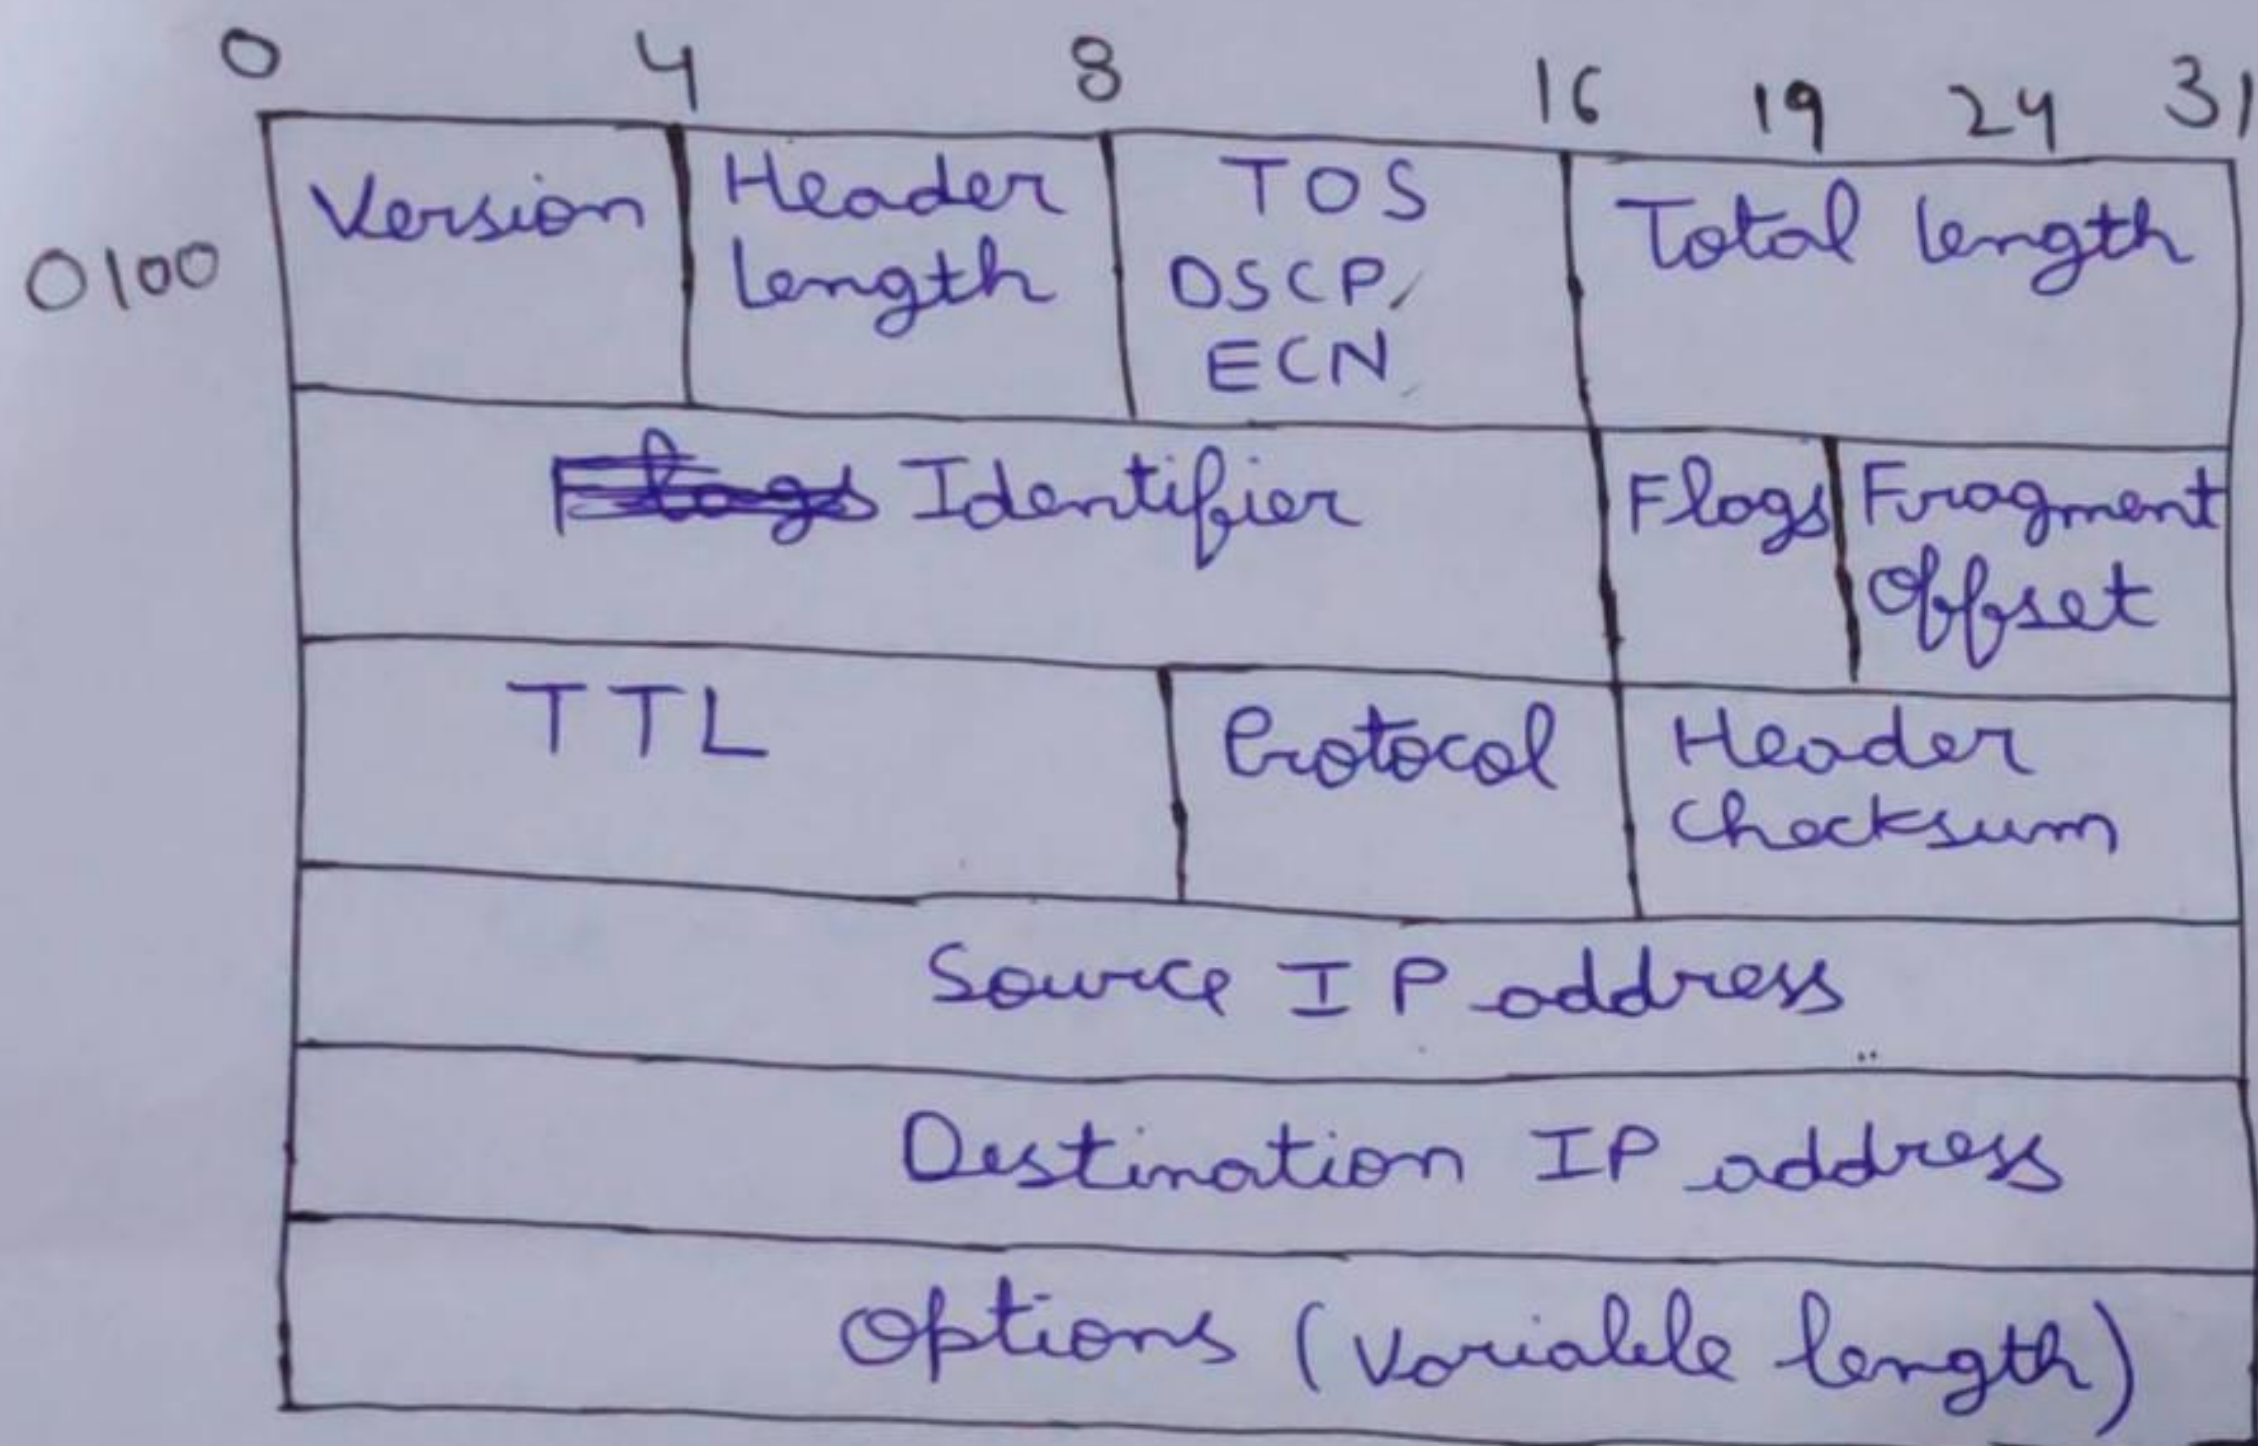 0 4 8 16 19 24 31
0100
Version
Header
length
TOS
DSCP,
ECN
Total length
Flags Identifier
Flags
Fragment
offset
TTL
Protocol
Header
checksum
Source IP address
Destination IP address
Options (Variable length)